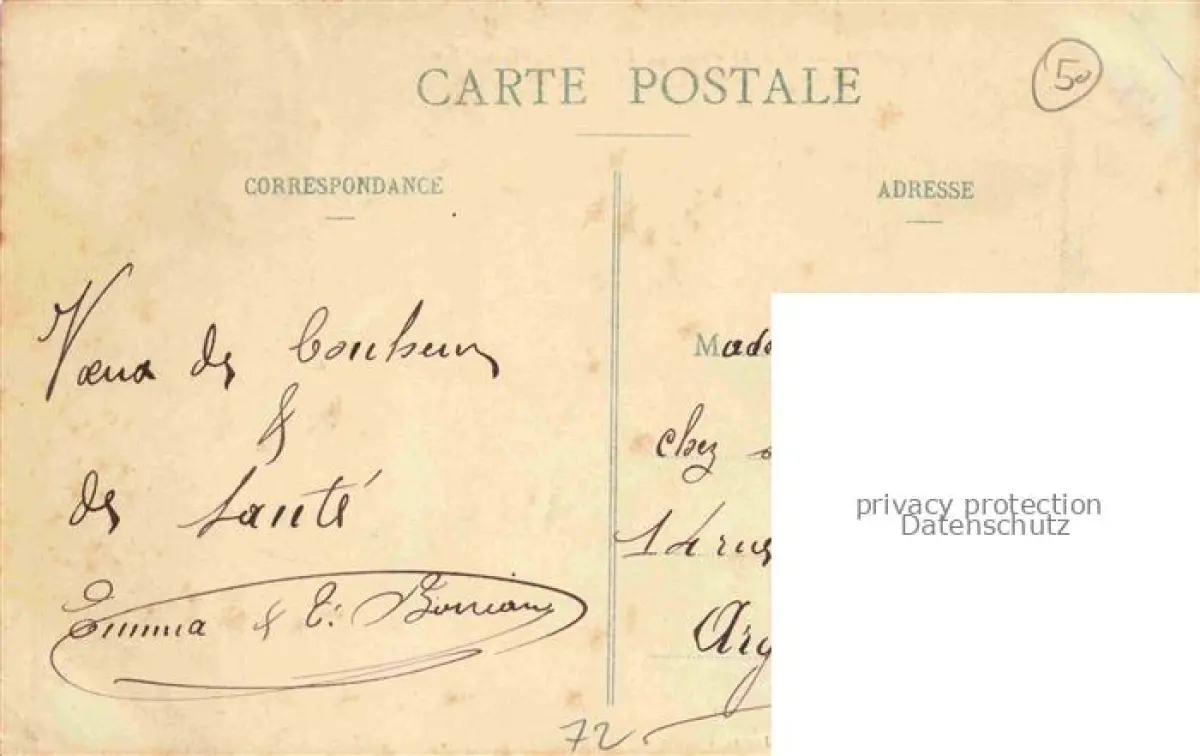 CARTE POSTALE
50
CORRESPONDANCE
ADRESSE
Vœux de bonheur
&
de santé
Emma & E.
Mada
chez
14 rue
Arg
72
privacy protection
Datenschutz